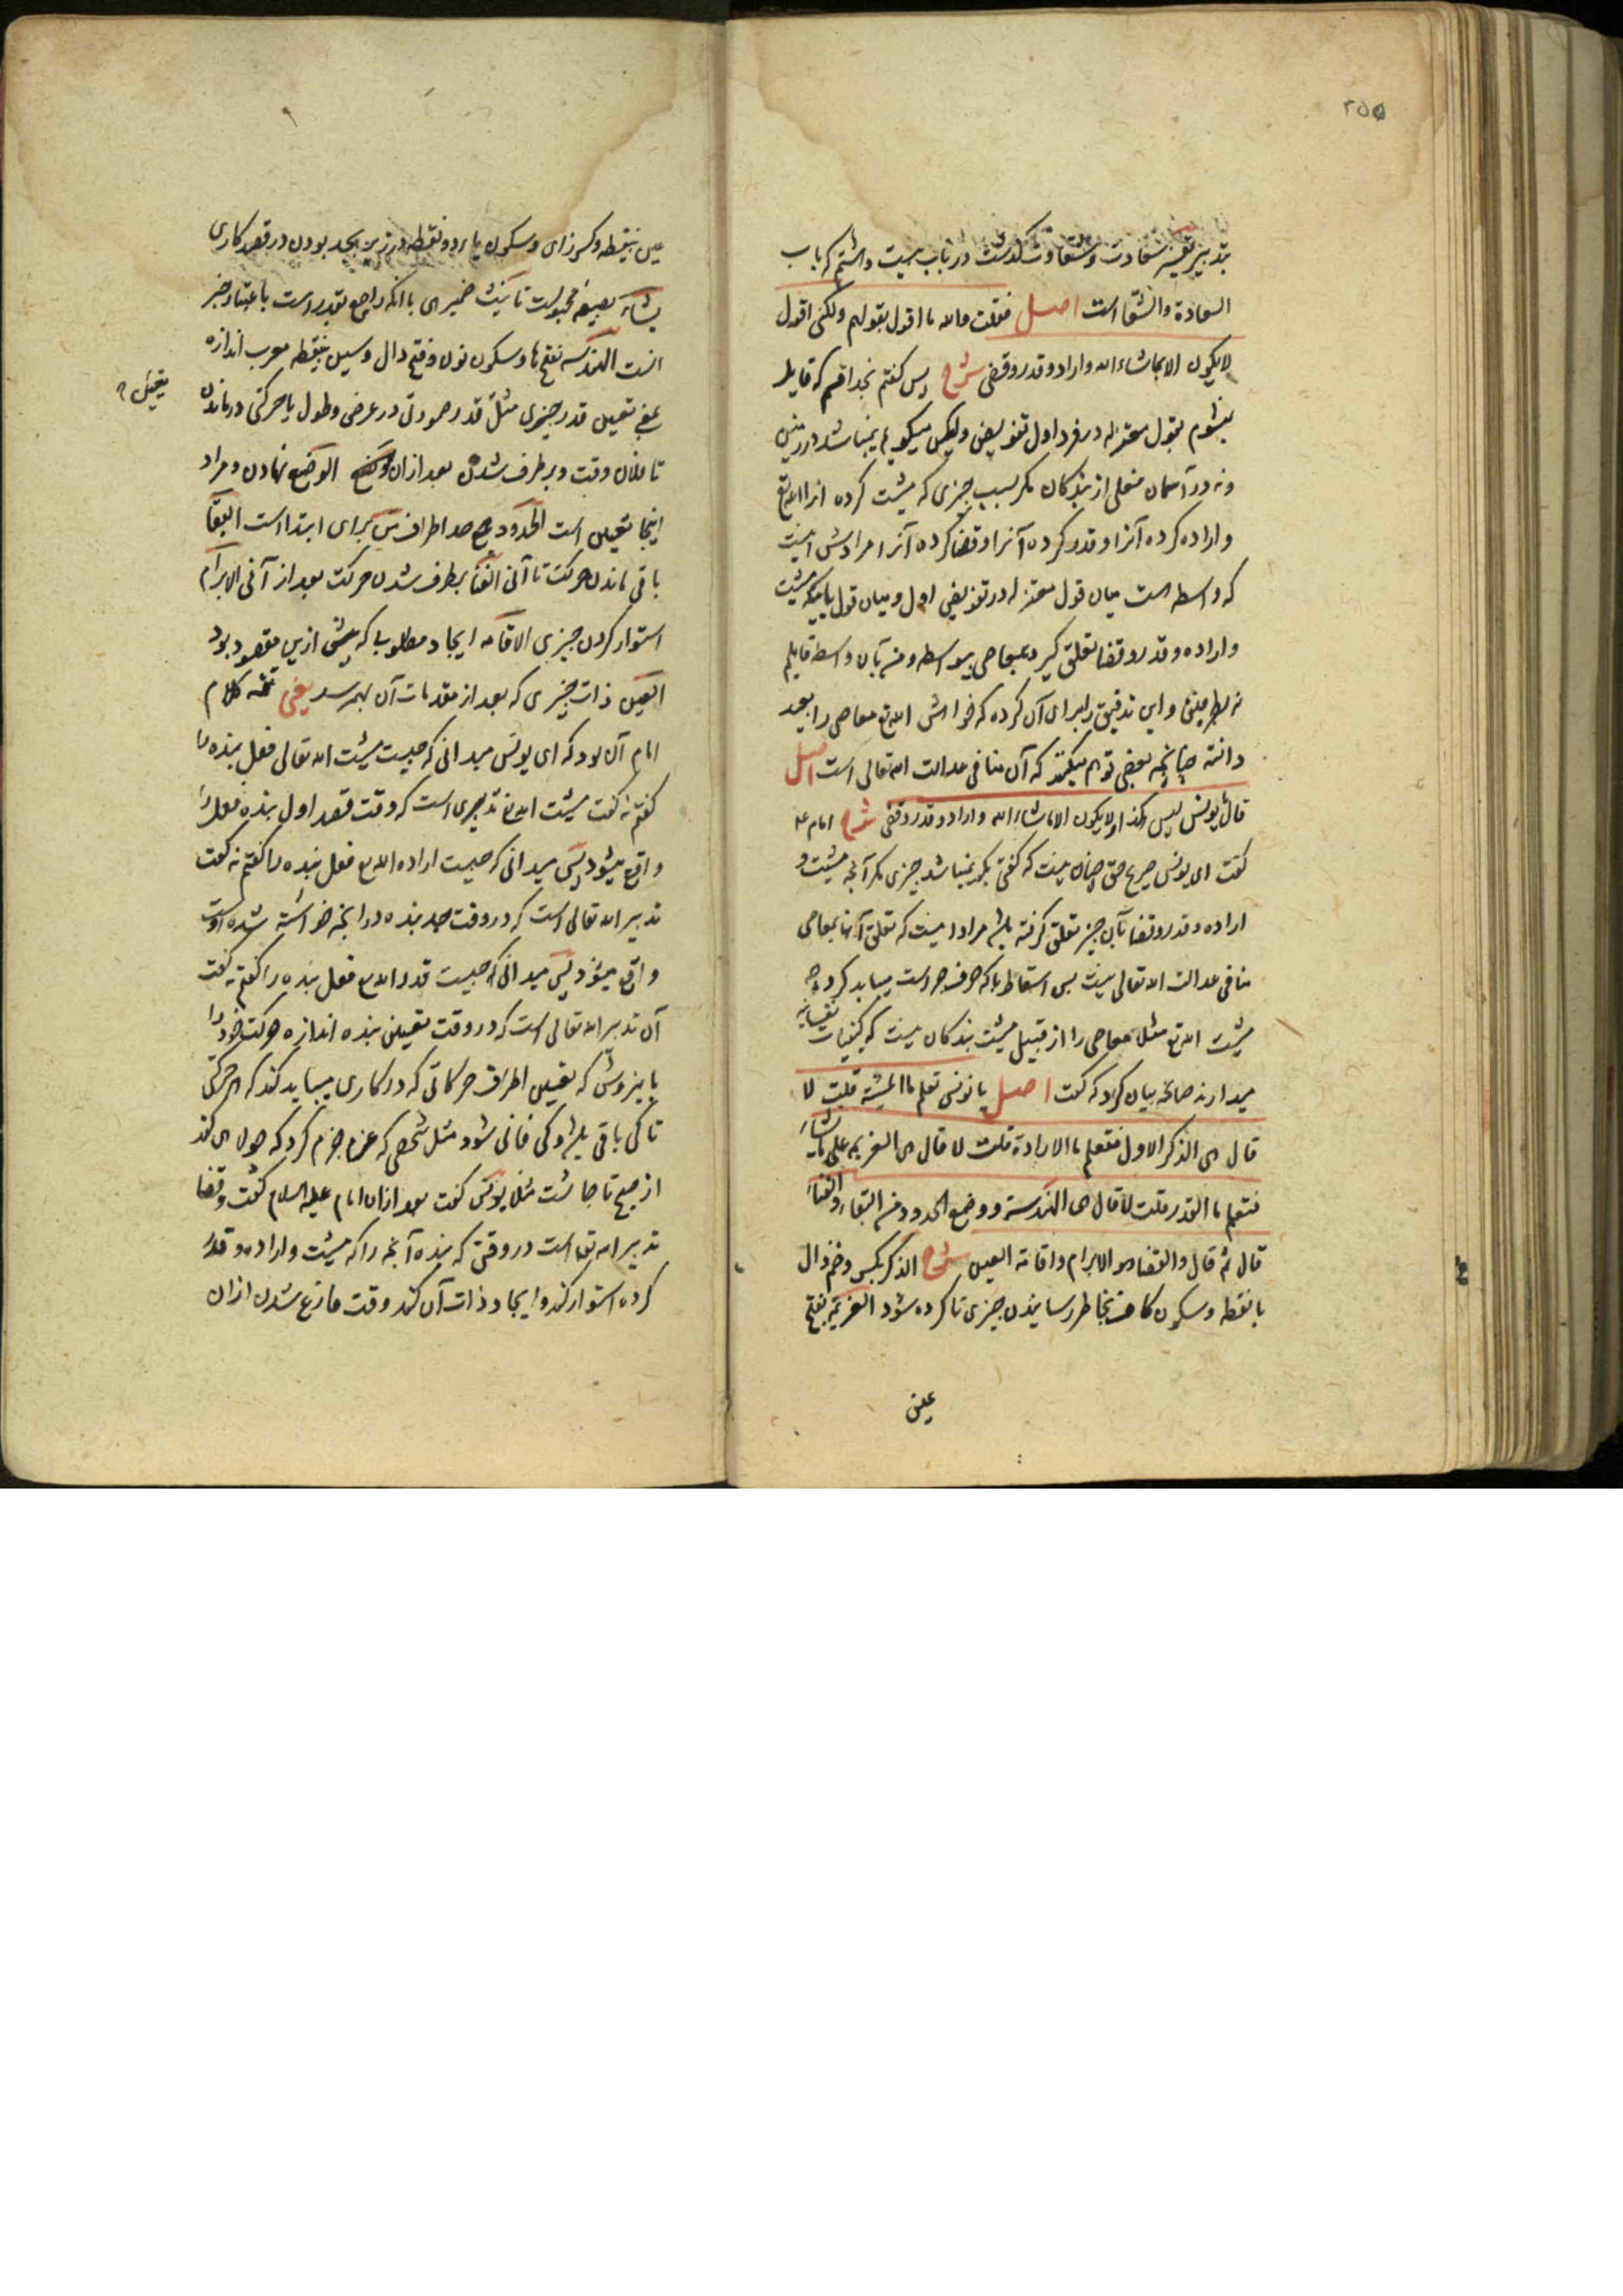 ۲۵۵
بتدبیر تفسیر سعادت و شقاوت گذشت در باب بیست و هشتم که باب
السعادة والشقا است اصل فقلت والله ما اقول بقولهم ولکنی اقول
لایکون الا بما شاء الله و اراد و قدر و قضی شرح پس گفتم بخدا قسم که قایل
نمیشوم بقول معتزله در فرد اول تفویض ولیکن میگویم نمیباشد در زمین
و نه در آسمان فعلی از بندگان مگر بسبب چیزی که مشیت کرده آنرا الله تع
و اراده کرده آنرا و قدر کرده آنرا و قضا کرده آنرا مرادش اینست
که واسطه است میان قول معتزله در تفویض اول و میان قول باینکه مشیت
و اراده و قدر و قضا تعلق گیرد بمعاصی بیواسطه و من بآن واسطه قایلم
نه بطرفین و این تدقیق را برای آن کرده که خواهش الله تع معاصی را بعید
دانسته چنانچه بعضی توهم میکنند که آن منافی عدالت الله تعالی است اصل
فقال یا یونس لیس هکذا لا یکون الا ما شاء الله و اراد و قدر و قضی شرح امام ع
گفت ای یونس صریح حق چنان نیست که گفتی بگو نمیباشد چیزی مگر آنچه مشیت و
اراده و قدر و قضا بآن چیز تعلق گرفته باشد مراد اینست که تعلق آنها بمعاصی
منافی عدالت الله تعالی نیست پس اسقاط با که حرف جر است میباید کرد چه
مشیت الله تع مثلا معاصی را از قبیل مشیت بندگان نیست که کیفیات نفسانیه
میدارند چنانچه بیان کرد که گفت اصل یا یونس تعلم ما المشیة قلت لا
قال هی الذکر الاول فتعلم ما الارادة قلت لا قال هی العزیمة علی ما یشاء
فتعلم ما القدر قلت لا قال هی الهندسة و وضع الحدود من البقاء والفناء
قال ثم قال والقضا هو الابرام و اقامة العین شرح الذکر بکسر و ضم ذال
با نقطه و سکون کاف بخاطر رسانیدن چیزی تا کرده شود العزیمة بفتح
عین
عین بینقطه و کسر زای و سکون یا دو نقطه در زیر بجد بودن در قصد کاری
یشاء بصیغه مجهولست تانیث ضمیر هی با آنکه راجع بقدر است باعتبار خبر
است الهندسه بفتح ها و سکون نون و فتح دال و سین بینقطه معرب اندازه
یعنی تعیین قدر چیزی مثل قدر صورتی در عرض و طول یا حرکتی در ماندن
تا فلان وقت و برطرف شدن بعد از آن الوضع نهادن و مراد
اینجا تعیین است الحدود جمع حد اطراف من برای ابتدا است البقا
باقی ماندن حرکت تا آنی الفنا برطرف شدن حرکت بعد از آنی الابرام
استوار کردن چیزی الاقامه ایجاد مطلوب که پیش ازین مقصود بود
العین ذات چیزی که بعد از مقدمات آن بهم رسد یعنی تتمه کلام
امام آن بود که ای یونس میدانی که چیست مشیت الله تعالی فعل بنده را
گفتم نه گفت مشیت الله تع تدبیری است که وقت قصد اول بنده فعل را
واقع میشود پس میدانی که چیست اراده الله تع فعل بنده را گفتم نه گفت
تدبیر الله تعالی است که در وقت جد بنده در آنچه خواسته شده اوست
واقع میشود پس میدانی که چیست قدر الله تع فعل بنده را گفتم نه گفت
آن تدبیر الله تعالی است که در وقت تعیین بنده اندازه حرکت خود را
باین روش که تعیین اطراف حرکاتی که در کاری میباید کند که هر حرکتی
تا کی باقی باشد و کی فانی شود مثل شخصی که عزم جزم کرد که جولاهی کند
از صبح تا چاشت مثلا یونس گفت بعد از آن امام علیه السلام گفت و قضا
تدبیر الله تعالی است در وقتی که بنده آنچه را که مشیت و اراده و قدر
کرده استوار کند و ایجاد ذات آن کند وقت فارغ شدن از آن